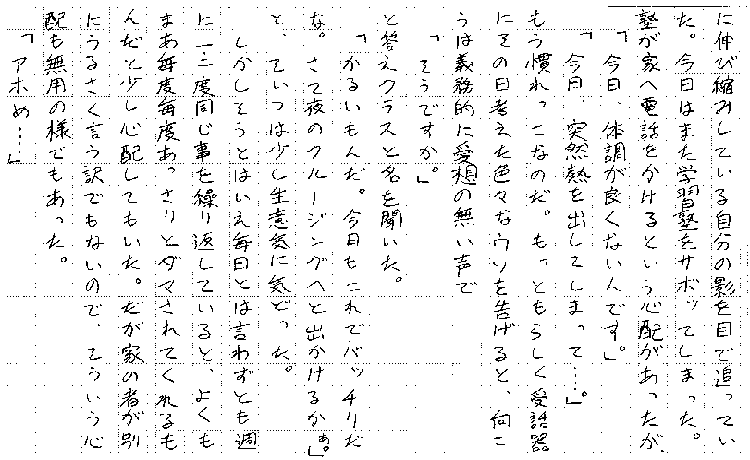 に伸び縮みしている自分の影を目で追ってい
た。今日はまた学習塾をサボッてしまった。
塾が家へ電話をかけるという心配があったが、
「今日、体調が良くないんです」。
「今日、突然熱を出してしまって…」。
もう慣れっこなのだ。もっともらしく受話器
にその日考えた色々なウソを告げると、向こ
うは義務的に愛想の無い声で
「そうですか」。
と答えクラスと名を聞いた。
「かるいもんだ。今日もこれでバッチリだ
な。さて夜のクルージングへと出かけるかぁ」
と、ていつは少し生意気に気どった。
しかしそうとはいえ毎日とは言わずとも週
に二三度同じ事を繰り返していると、よくも
まあ毎度毎度あっさりとダマされてくれるも
んだと少し心配してもいた。だが家の者が別
にうるさく言う訳でもないので、そういう心
配も無用の様でもあった。
「アホめ…」